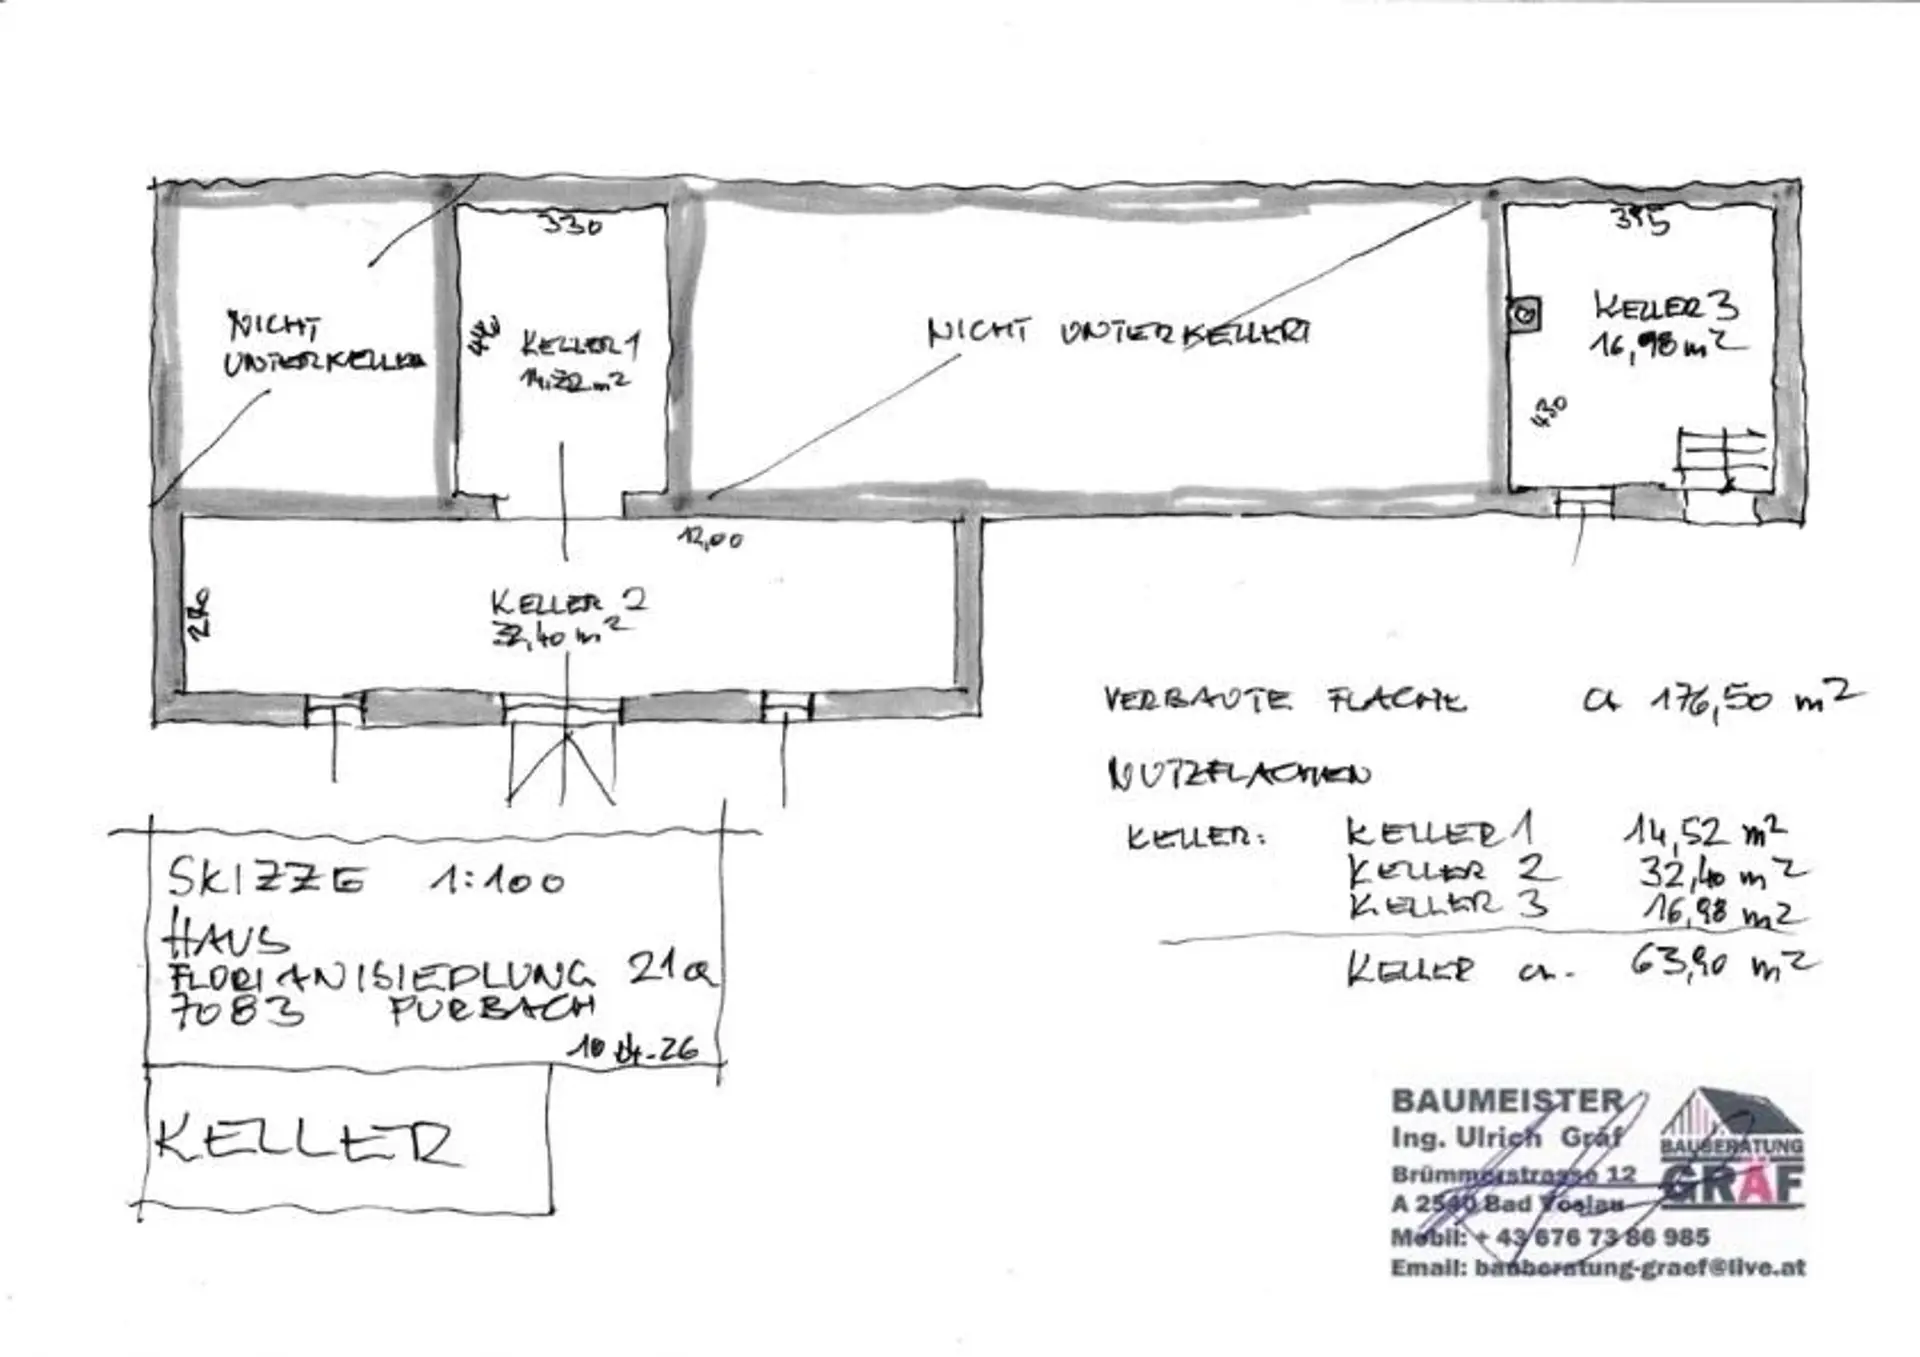 330
395
NICHT
UNTERKELLER
440
KELLER 1
m²
NICHT UNTERKELLERT
KELLER 3
16,98 m²
430
12,00
270
KELLER 2
32,40 m²
VERBAUTE FLÄCHE ca 176,50 m²
NUTZFLÄCHEN
KELLER: KELLER 1 14,52 m²
KELLER 2 32,40 m²
KELLER 3 16,98 m²
KELLER ca. 63,90 m²
SKIZZE 1:100
HAUS
FLORIANISIEDLUNG 21a
7083 PURBACH
10.04.26
KELLER
BAUMEISTER
Ing. Ulrich Gräf
Brümmerstrasse 12
A 2540 Bad Vöslau
Mobil: + 43 676 73 86 985
Email: bauberatung-graef@live.at
BAUBERATUNG
GRÄF